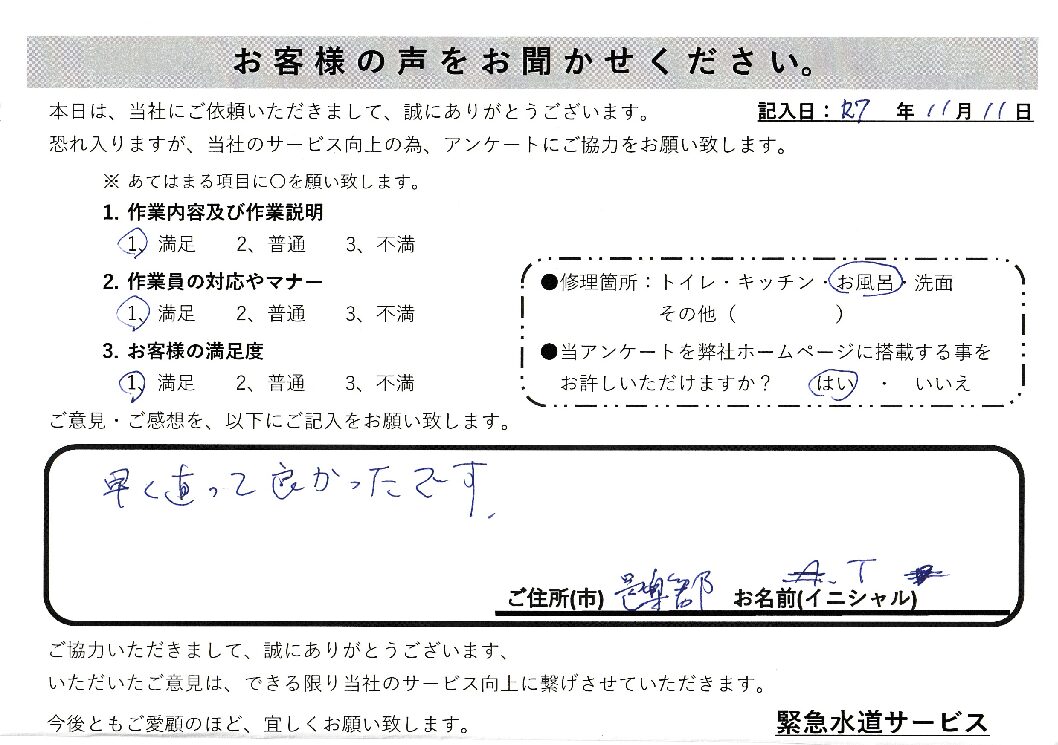 お客様の声をお聞かせください。
本日は、当社にご依頼いただきまして、誠にありがとうございます。
記入日：R7 年 11月 11日
恐れ入りますが、当社のサービス向上の為、アンケートにご協力をお願い致します。
※ あてはまる項目に〇を願い致します。
1. 作業内容及び作業説明
1、満足 2、普通 3、不満
2. 作業員の対応やマナー
1、満足 2、普通 3、不満
3. お客様の満足度
1、満足 2、普通 3、不満
●修理箇所：トイレ・キッチン・お風呂・洗面
その他（ ）
●当アンケートを弊社ホームページに搭載する事を
お許しいただけますか？ はい ・ いいえ
ご意見・ご感想を、以下にご記入をお願い致します。
早く直って良かったです.
ご住所(市) 邑楽郡 お名前(イニシャル) A. T
ご協力いただきまして、誠にありがとうございます、
いただいたご意見は、できる限り当社のサービス向上に繋げさせていただきます。
今後ともご愛顧のほど、宜しくお願い致します。
緊急水道サービス